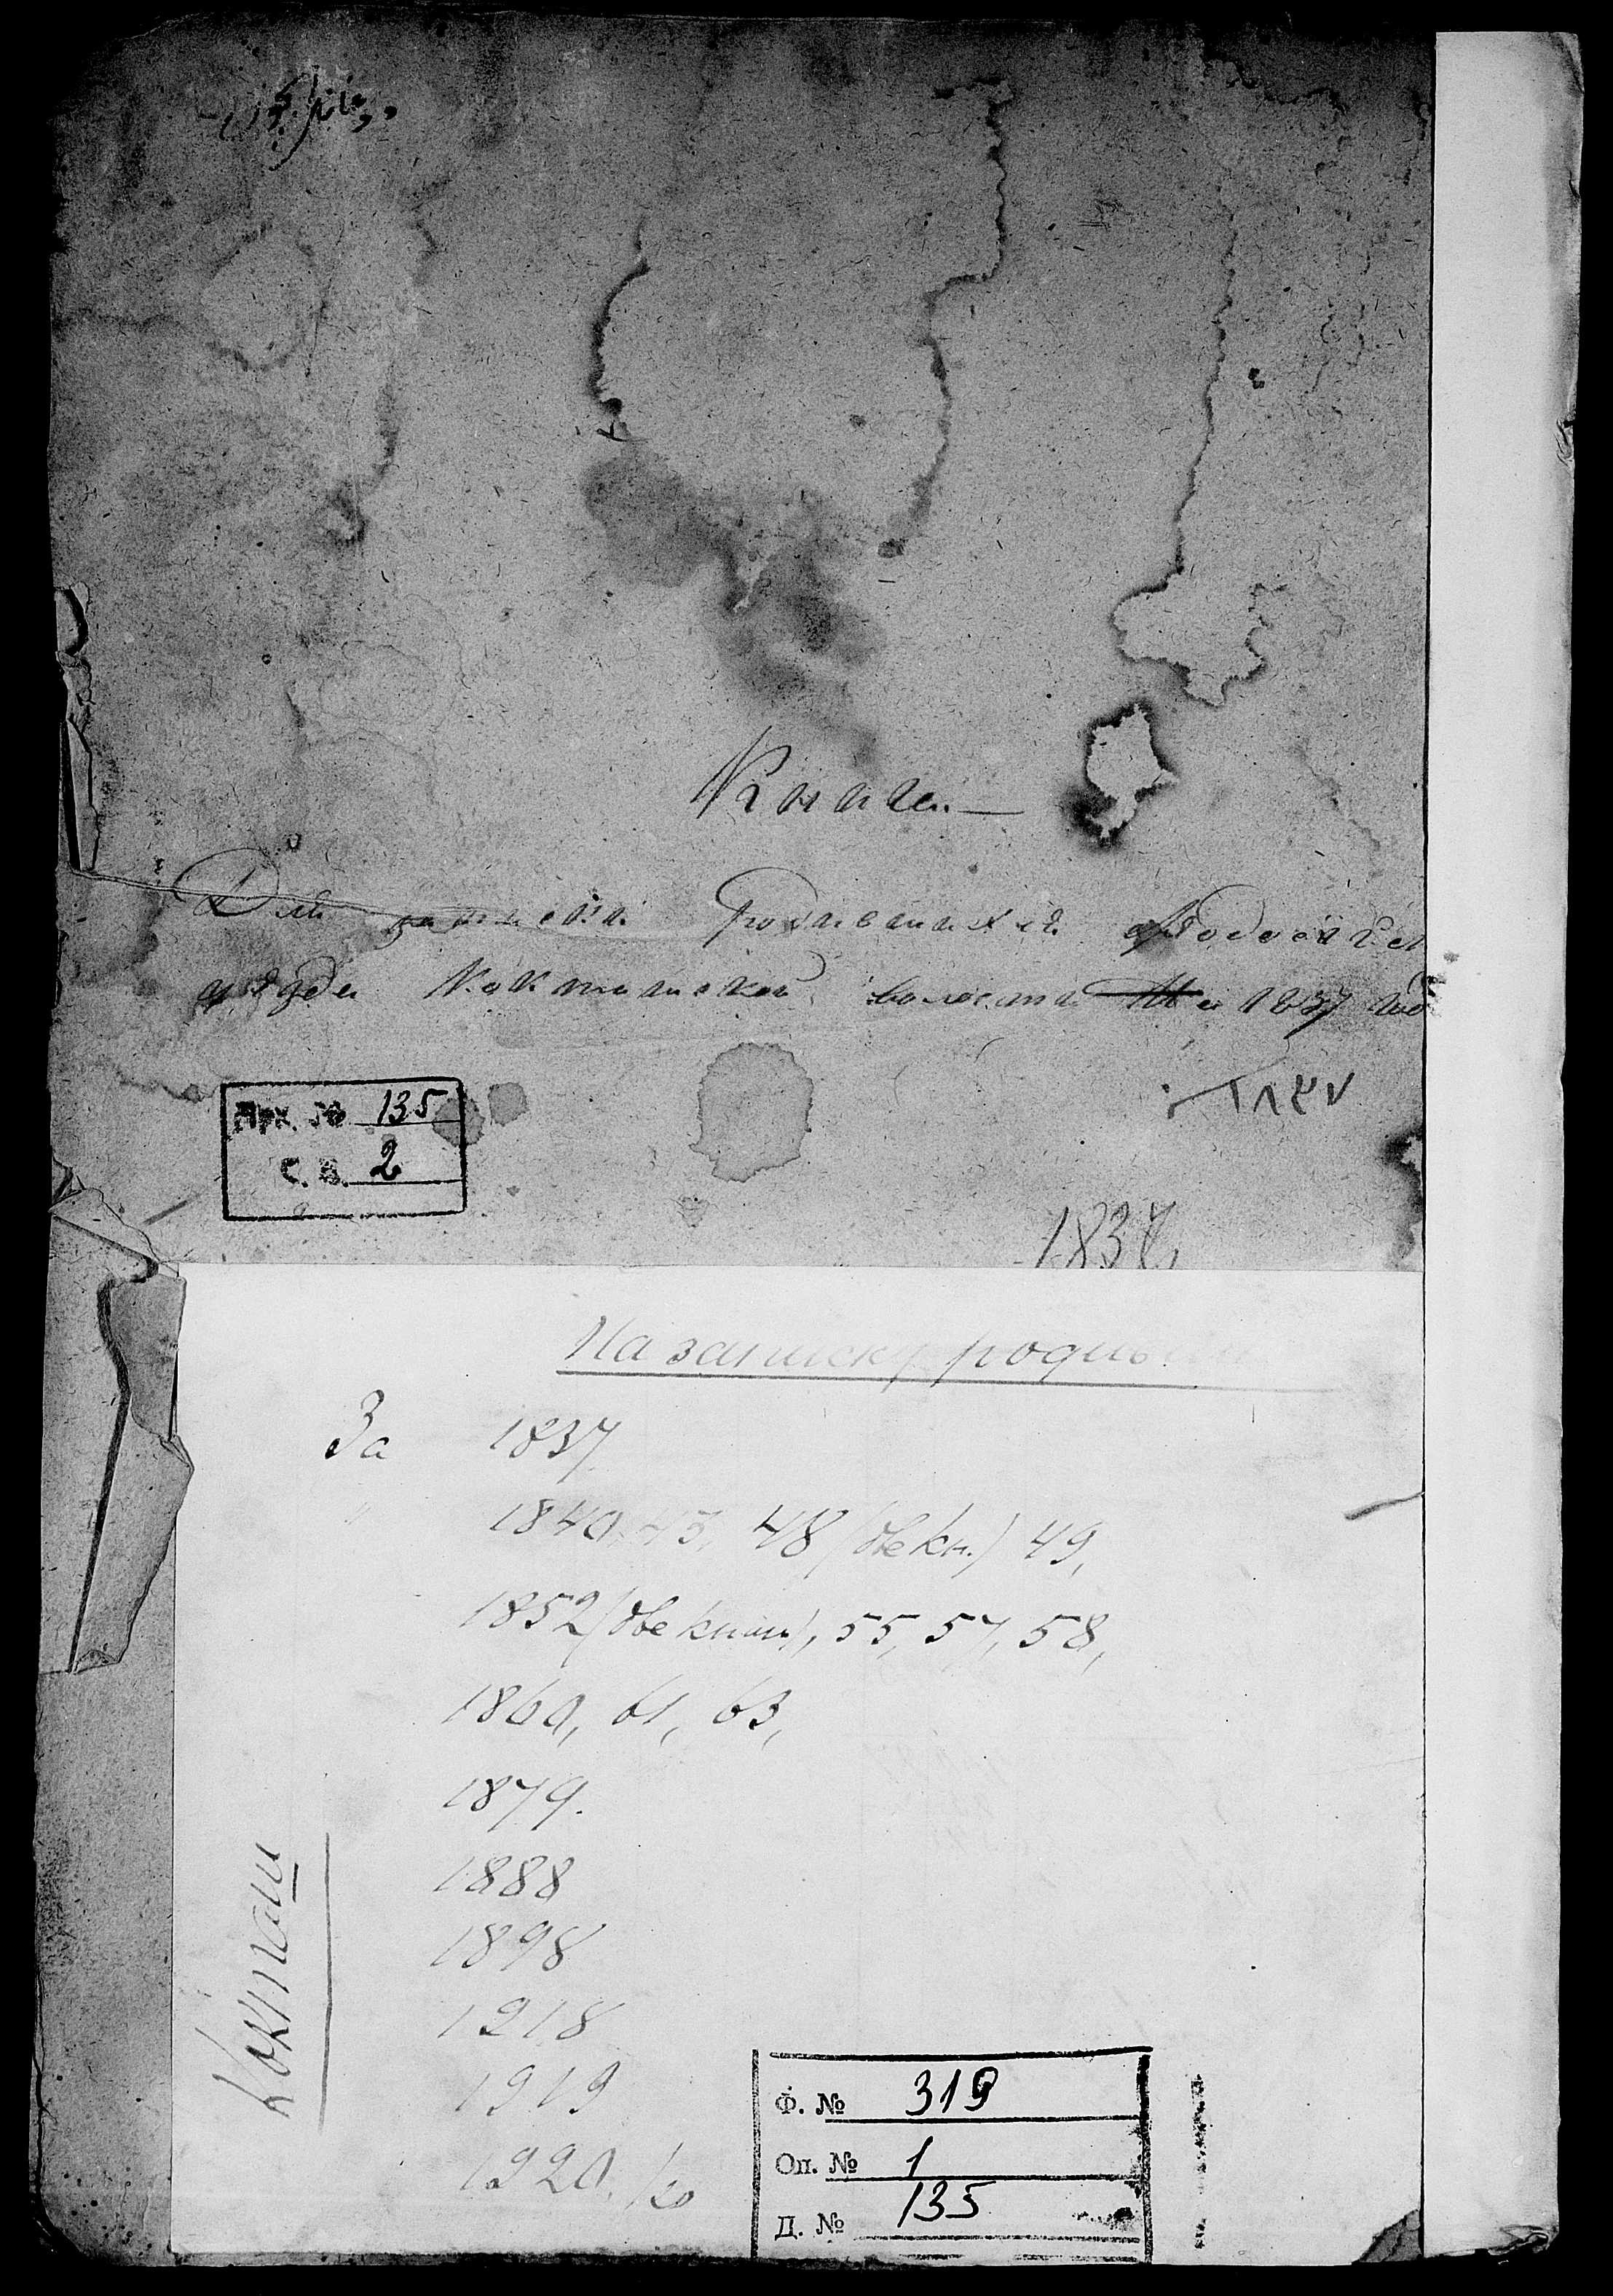 Книга
Для записки родившихся Ѳеодосійск
уезда Кокташской волости На 1837 год
١٨٣٧
Арх. № 135
С. В. 2
1837
На записку родив
За 1837
" 1840, 45, 48 (две кн.) 49,
1852 (две книги), 55, 57, 58,
1860, 61, 63,
1879.
1888
1898
1918
1919
1920.
Кокташ
Ф. № 319
Оп. № 1
Д. № 135